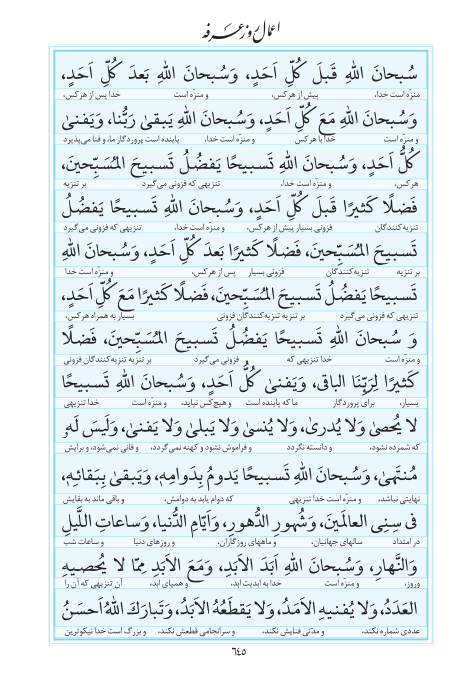 اعمال روز عرفه
سُبحانَ اللهِ قَبلَ كُلِّ اَحَدٍ، وَسُبحانَ اللهِ بَعدَ كُلِّ اَحَدٍ،
منزّه است خدا، پیش از هر کس، و منزّه است خدا پس از هر کس،
وَسُبحانَ اللهِ مَعَ كُلِّ اَحَدٍ، وَسُبحانَ اللهِ يَبقىٰ رَبُّنا، وَيَفنىٰ
و منزّه است خدا با هر کس و منزّه است خدا، پاینده است پروردگار ما، و فنا می‌پذیرد
كُلُّ اَحَدٍ، وَسُبحانَ اللهِ تَسبيحًا يَفضُلُ تَسبيحَ المُسَبِّحينَ،
هر کس، و منزّه است خدا، تنزیهی که فزونی می‌گیرد بر تنزیه
فَضلًا كَثيرًا قَبلَ كُلِّ اَحَدٍ، وَسُبحانَ اللهِ تَسبيحًا يَفضُلُ
تنزیه‌کنندگان فزونی بسیار پیش از هر کس، و منزّه است خدا، تنزیهی که فزونی می‌گیرد
تَسبيحَ المُسَبِّحينَ، فَضلًا كَثيرًا بَعدَ كُلِّ اَحَدٍ، وَسُبحانَ اللهِ
بر تنزیه تنزیه‌کنندگان فزونی بسیار پس از هر کس، و منزّه است خدا
تَسبيحًا يَفضُلُ تَسبيحَ المُسَبِّحينَ، فَضلًا كَثيرًا مَعَ كُلِّ اَحَدٍ،
تنزیهی که فزونی می‌گیرد بر تنزیه تنزیه‌کنندگان فزونی بسیار به همراه هر کس،
وَ سُبحانَ اللهِ تَسبيحًا يَفضُلُ تَسبيحَ المُسَبِّحينَ، فَضلًا
و منزّه است خدا تنزیهی که فزونی می‌گیرد بر تنزیه تنزیه‌کنندگان فزونی
كَثيرًا لِرَبِّنَا الباقى، وَيَفنىٰ كُلُّ اَحَدٍ، وَسُبحانَ اللهِ تَسبيحًا
بسیار، برای پروردگار ما که پاینده است و هیچ‌کس نپاید، و منزّه است خدا تنزیهی
لا يُحصىٰ وَلا يُدرىٰ، وَلا يُنسىٰ وَلا يَبلىٰ وَلا يَفنىٰ، وَلَيسَ لَهٗ
که شمرده نشود، و دانسته نگردد و فراموش نشود و کهنه نمی‌گردد، و فانی نمی‌شود، و برایش
مُنتَهىٰ، وَسُبحانَ اللهِ تَسبيحًا يَدومُ بِدَوامِهٖ، وَيَبقىٰ بِبَقائِهٖ،
نهایتی نباشد، و منزّه است خدا تنزیهی که دوام یابد به دوامش، و باقی ماند به بقایش
فى سِنِى العالَمينَ، وَشُهورِ الدُّهورِ، وَاَيّامِ الدُّنيا، وَساعاتِ اللَّيلِ
در امتداد سالهای جهانیان، و ماههای روزگاران، و روزهای دنیا و ساعات شب
وَالنَّهارِ، وَسُبحانَ اللهِ اَبَدَ الاَبَدِ، وَمَعَ الاَبَدِ مِمّا لا يُحصيهِ
وروز، و منزّه است خدا به ابدیت ابد، و همپای ابد، آن تنزیهی که آن را
العَدَدُ، وَلا يُفنيهِ الاَمَدُ، وَلا يَقطَعُهُ الاَبَدُ، وَتَبارَكَ اللهُ اَحسَنُ
عددی شماره نکند، و مدّتی فنایش نکند، و سرانجامی قطعش نکند، و بزرگ است خدا نیکوترین
٦٤٥